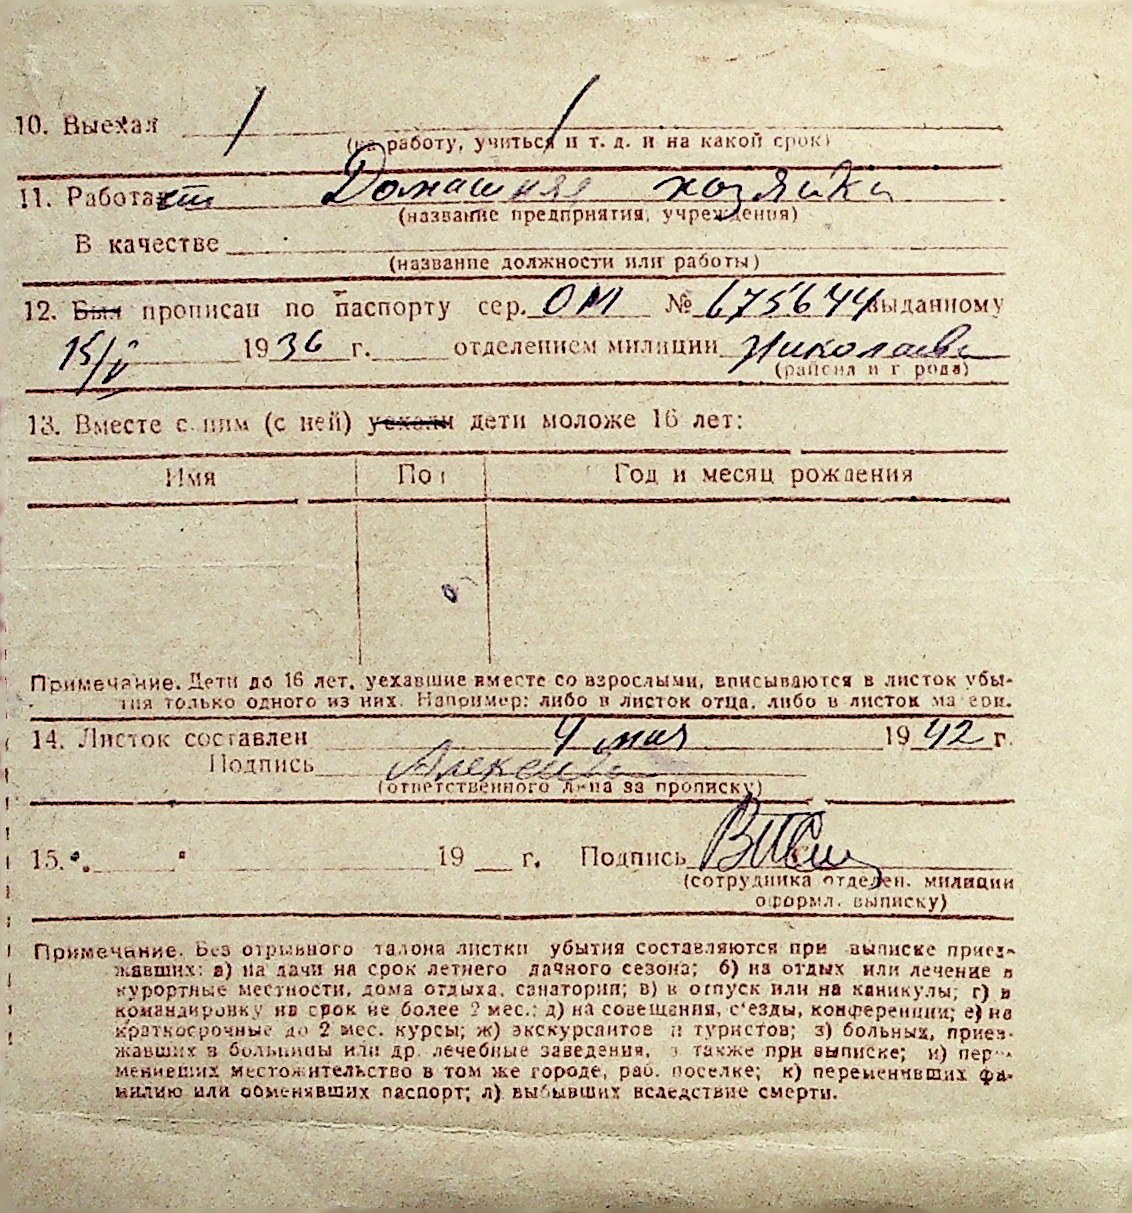 10. Выехал
(на работу, учиться и т. д. и на какой срок)
11. Работает Домашняя хозяйка
(название предприятия, учреждения)
В качестве
(название должности или работы)
12. Был прописан по паспорту сер. ОМ № 675644 выданному
15/V 1936 г. отделением милиции Николаев
(района и города)
13. Вместе с ним (с ней) уехали дети моложе 16 лет:
Имя Пол Год и месяц рождения
Примечание. Дети до 16 лет, уехавшие вместе со взрослыми, вписываются в листок убы-
тия только одного из них. Например: либо в листок отца, либо в листок матери.
14. Листок составлен 4 мая 1942 г.
Подпись
(ответственного лица за прописку)
15. „ " 19 г. Подпись
(сотрудника отделен. милиции
оформл. выписку)
Примечание. Без отрывного талона листки убытия составляются при выписке приез-
жавших: а) на дачи на срок летнего дачного сезона; б) на отдых или лечение в
курортные местности, дома отдыха, санатории; в) в отпуск или на каникулы; г) в
командировку на срок не более 2 мес.; д) на совещания, с'езды, конференции; е) на
краткосрочные до 2 мес. курсы; ж) экскурсантов и туристов; з) больных, приез-
жавших в больницы или др. лечебные заведения, а также при выписке; и) пере-
менивших местожительство в том же городе, раб. поселке; к) переменивших фа-
милию или обменявших паспорт; л) выбывших вследствие смерти.